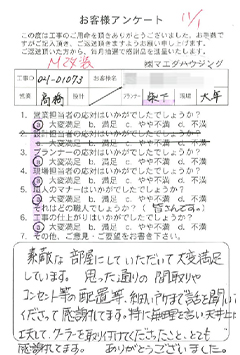 お客様アンケート
11/1
この度は工事のご用命を頂きありがとうございました。お客様で
すがご記入頂き、ご返送頂きますようお願い申し上げます。
ご返送頂いた方から、毎月抽選で感謝品を進呈いたします。
M様
㈱マエダハウジング
工事の 041-01073 お客様名
営業 高橋 プランナー 現場 大年
1. 営業担当者の応対はいかがでしたでしょうか?
a 大変満足 b. 満足 c. やや不満 d. 不満
2.
a. 大変満足 b. 満足 c. やや不満 d. 不満
3. プランナーの応対はいかがでしたでしょうか?
a 大変満足 b. 満足 c. やや不満 d. 不満
4. 現場担当者の応対はいかがでしたでしょうか?
a 大変満足 b. 満足 c. やや不満 d. 不満
5. 職人のマナーはいかがでしたでしょうか?
それはどの職人でしょうか?( 皆さんです。 )
a 大変満足 b. 満足 c. やや不満 d. 不満
6. 工事の仕上がりはいかがでしたでしょうか?
a 大変満足 b. 満足 c. やや不満 d. 不満
7. その他、ご意見・ご要望をお書き下さい。
素敵な部屋にしていただいて大変満足
しています。思った通りの間取りや
コンセント等の配置等、細い所まで話を聞いて
くださって感謝してます。特に無理を言い天井を
工夫して、クーラーを取り付けてくださったこと、とても
感謝してます。ありがとうございました。